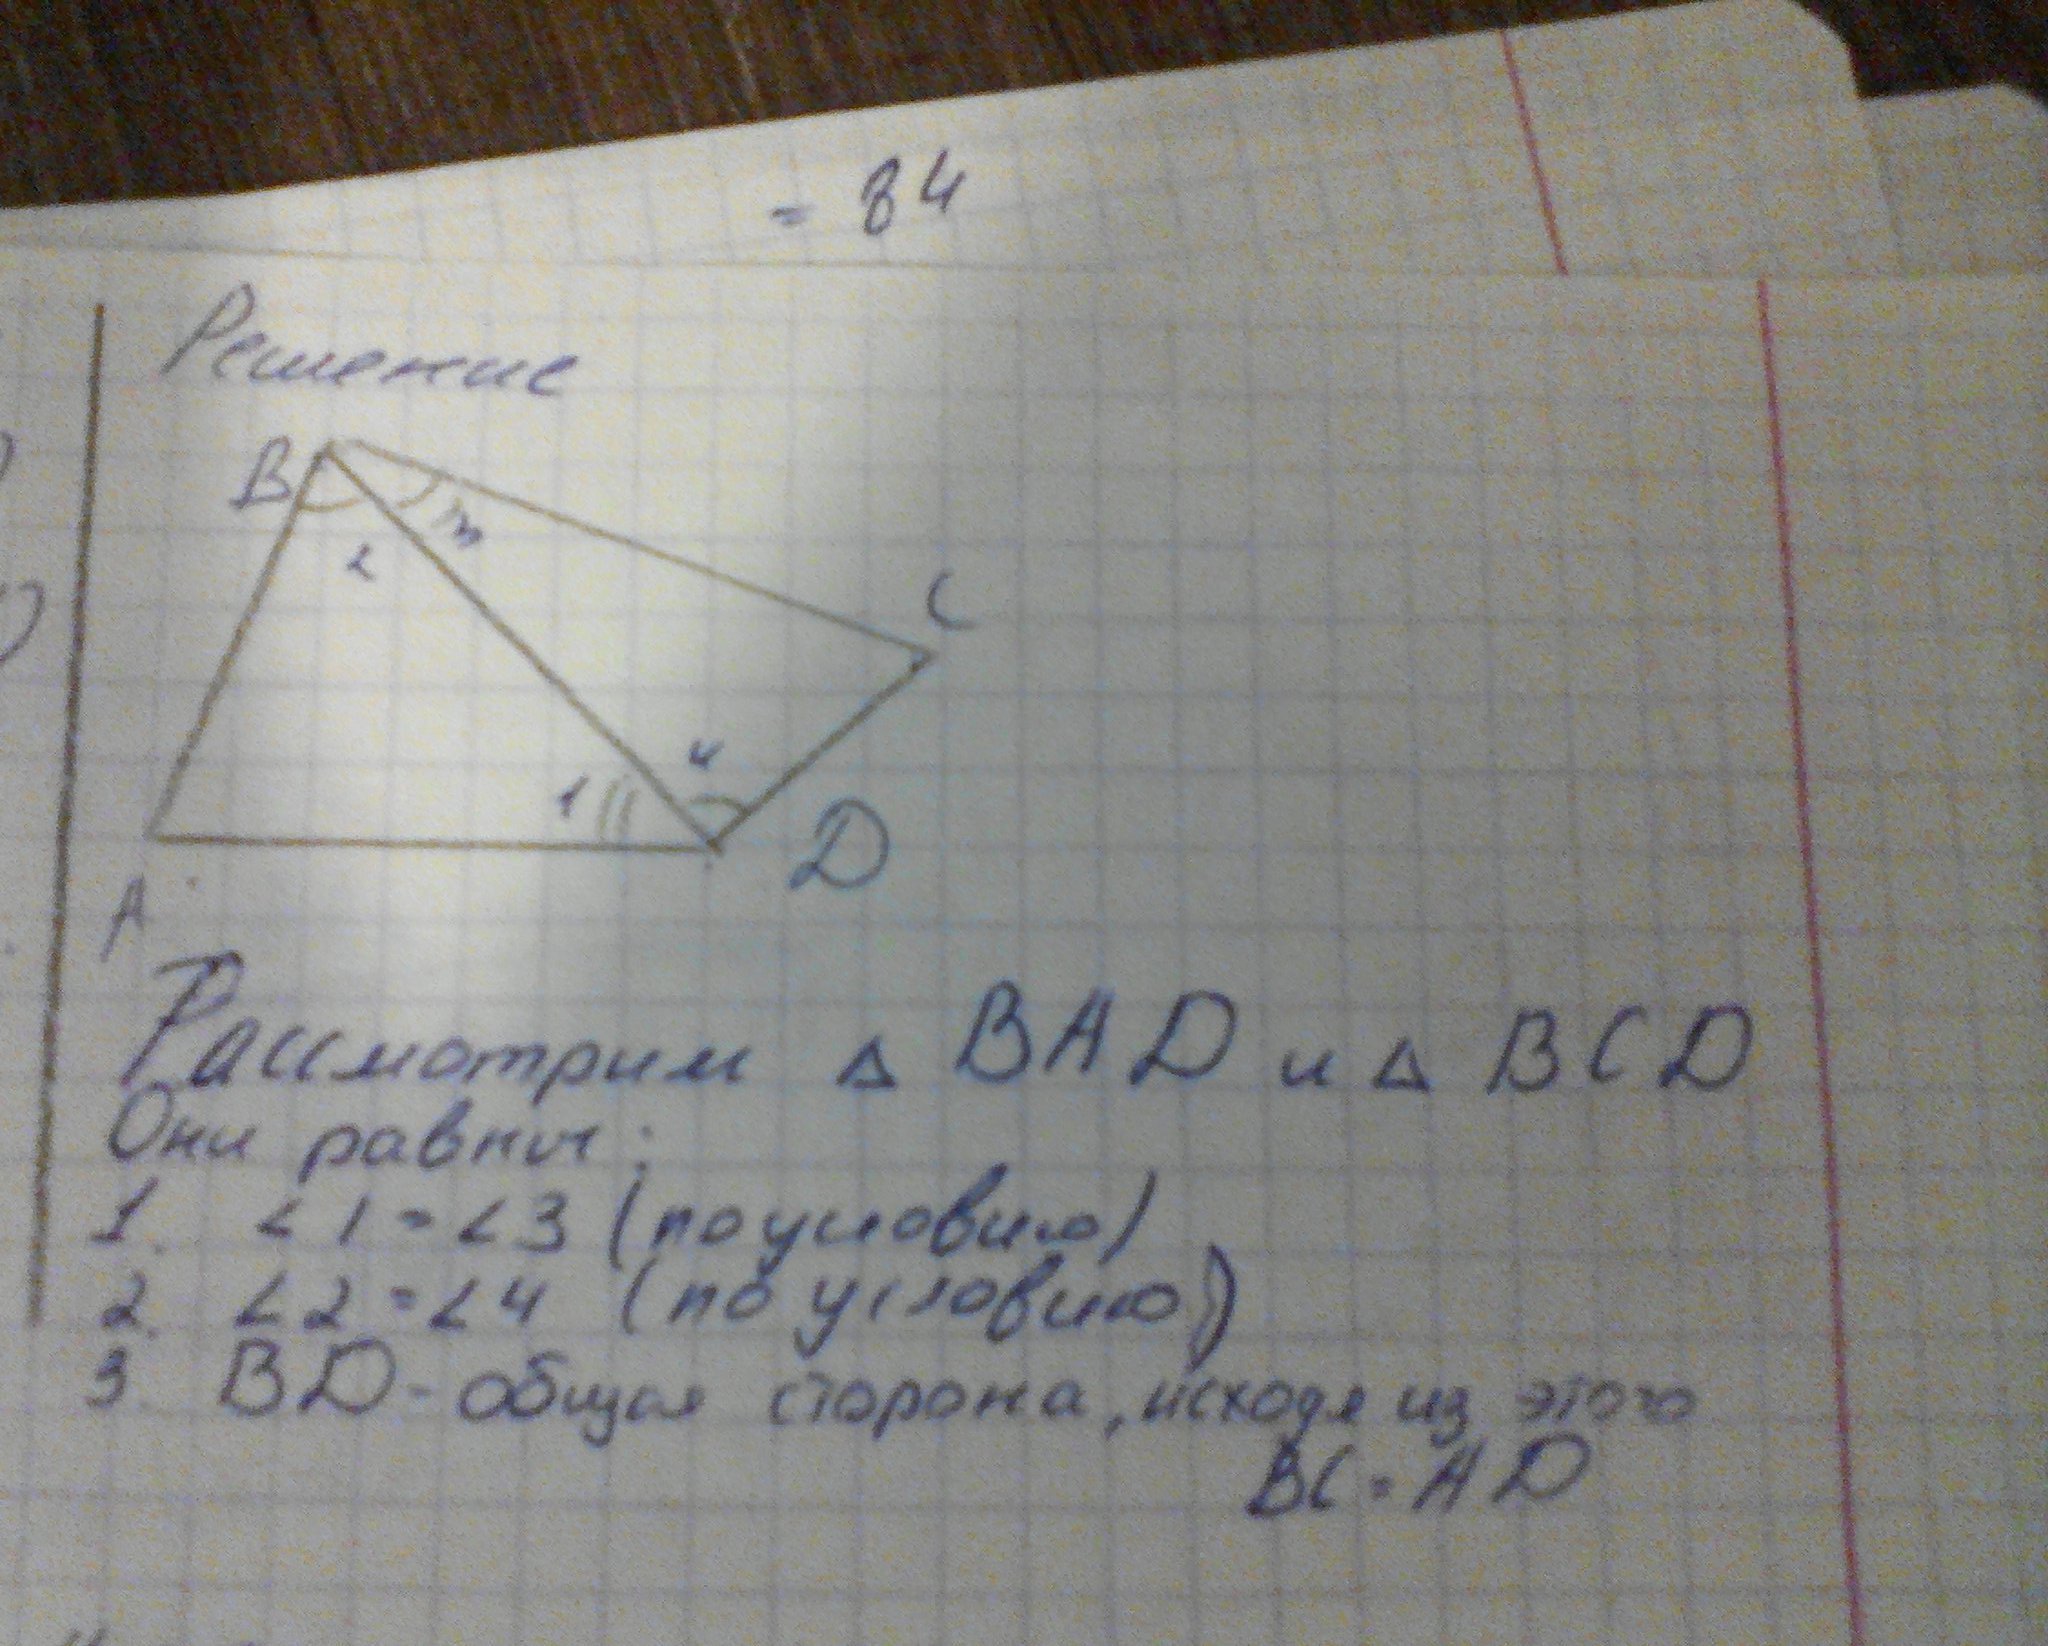 = 84
Решение
B
3
2
C
4
1
D
A
Рассмотрим △ BAD и △ BCD
Они равны:
1. ∠1 = ∠3 (по условию)
2. ∠2 = ∠4 (по условию)
3. BD - общая сторона, исходя из этого
BC = AD